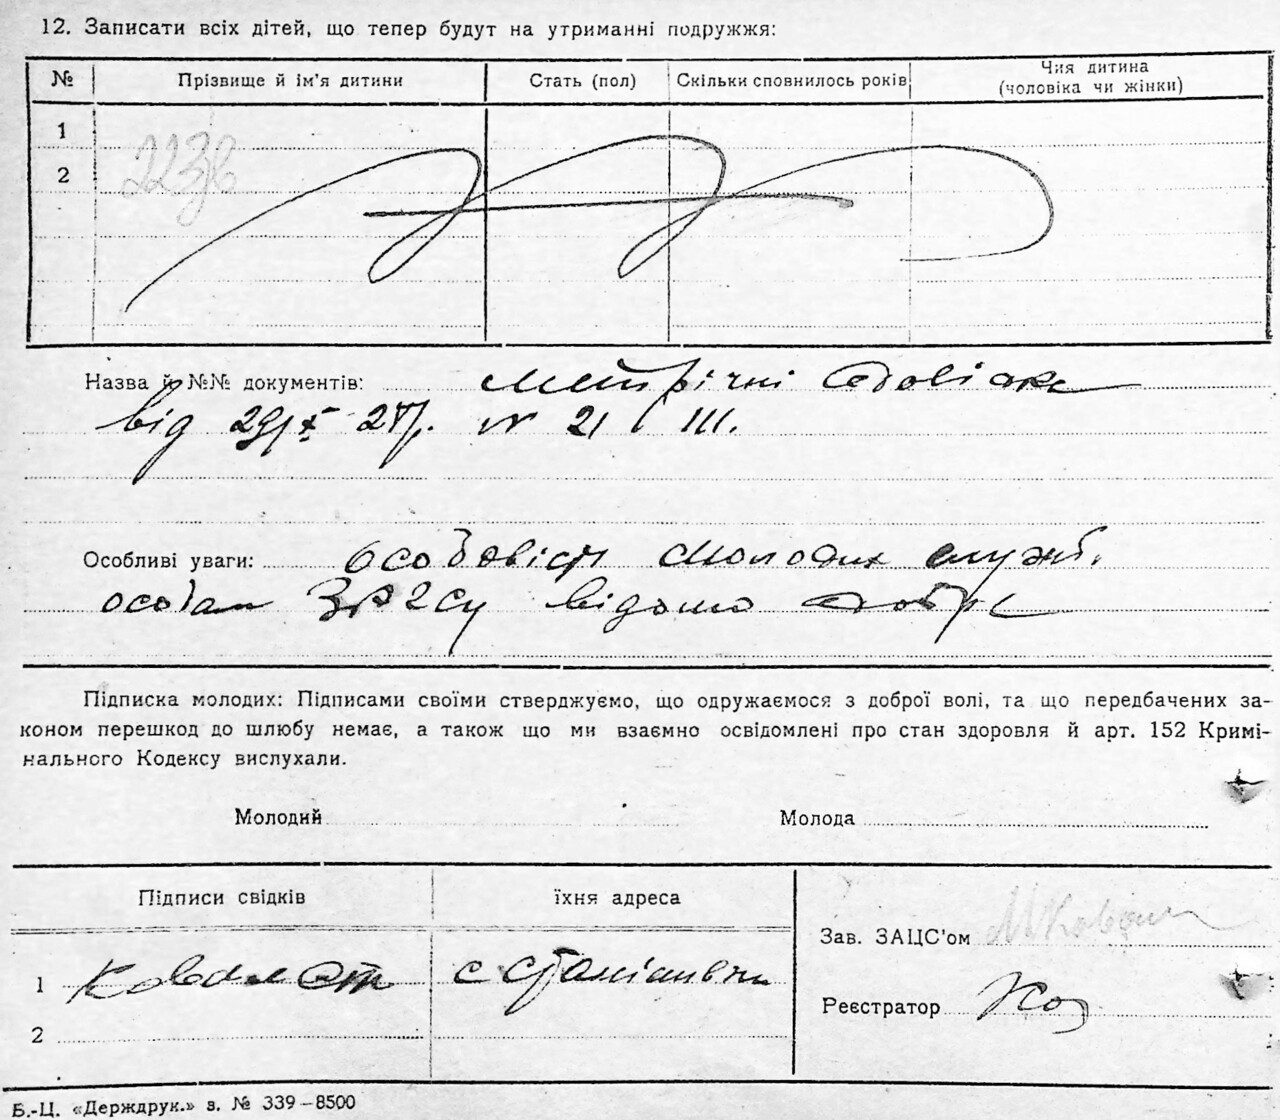 12. Записати всіх дітей, що тепер будут на утриманні подружжя:
№ Прізвище й ім'я дитини Стать (пол) Скільки сповнилось років Чия дитина (чоловіка чи жінки)
1
2
Назва й №№ документів: Метричні довідки
від 29/X 27р. N 21 / III.
Особливі уваги: особовість молодих служб.
особам ЗАГСу відомо добре
Підписка молодих: Підписами своїми стверджуємо, що одружаємося з доброї волі, та що передбачених за-
коном перешкод до шлюбу немає, а також що ми взаємно освідомлені про стан здоровля й арт. 152 Кримі-
нального Кодексу вислухали.
Молодий Молода
Підписи свідків їхня адреса
Зав. ЗАЦС'ом МКоваль
1 Коваль с
Реєстратор
2
Б.-Ц. «Держдрук.» з. № 339—8500